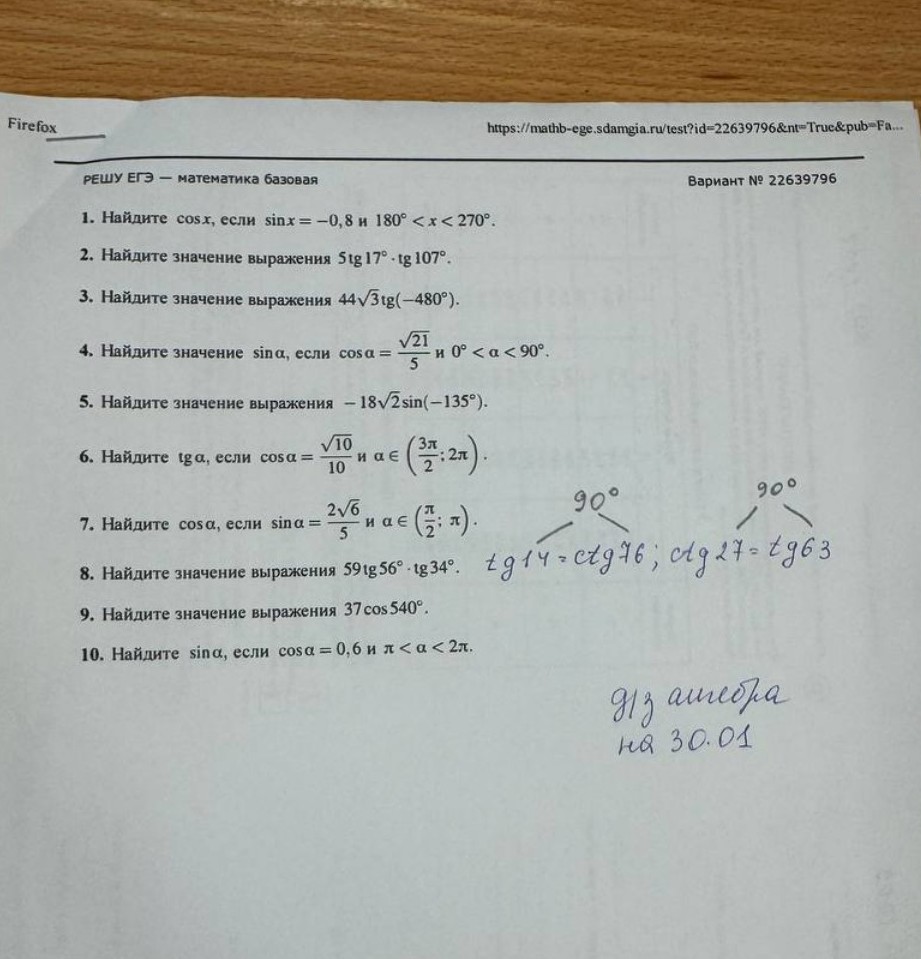 Firefox
https://mathb-ege.sdamgia.ru/test?id=22639796&nt=True&pub=Fa...
РЕШУ ЕГЭ — математика базовая
Вариант № 22639796
1. Найдите cos x, если sin x = −0,8 и 180° < x < 270°.
2. Найдите значение выражения 5 tg 17° · tg 107°.
3. Найдите значение выражения 44√3 tg(−480°).
4. Найдите значение sin α, если cos α = √21/5 и 0° < α < 90°.
5. Найдите значение выражения − 18√2 sin(−135°).
6. Найдите tg α, если cos α = √10/10 и α ∈ (3π/2; 2π).
7. Найдите cos α, если sin α = 2√6/5 и α ∈ (π/2; π).
90° 90°
tg14 = ctg76; ctg27 = tg63
8. Найдите значение выражения 59 tg 56° · tg 34°.
9. Найдите значение выражения 37 cos 540°.
10. Найдите sin α, если cos α = 0,6 и π < α < 2π.
д/з алгебра
на 30.01